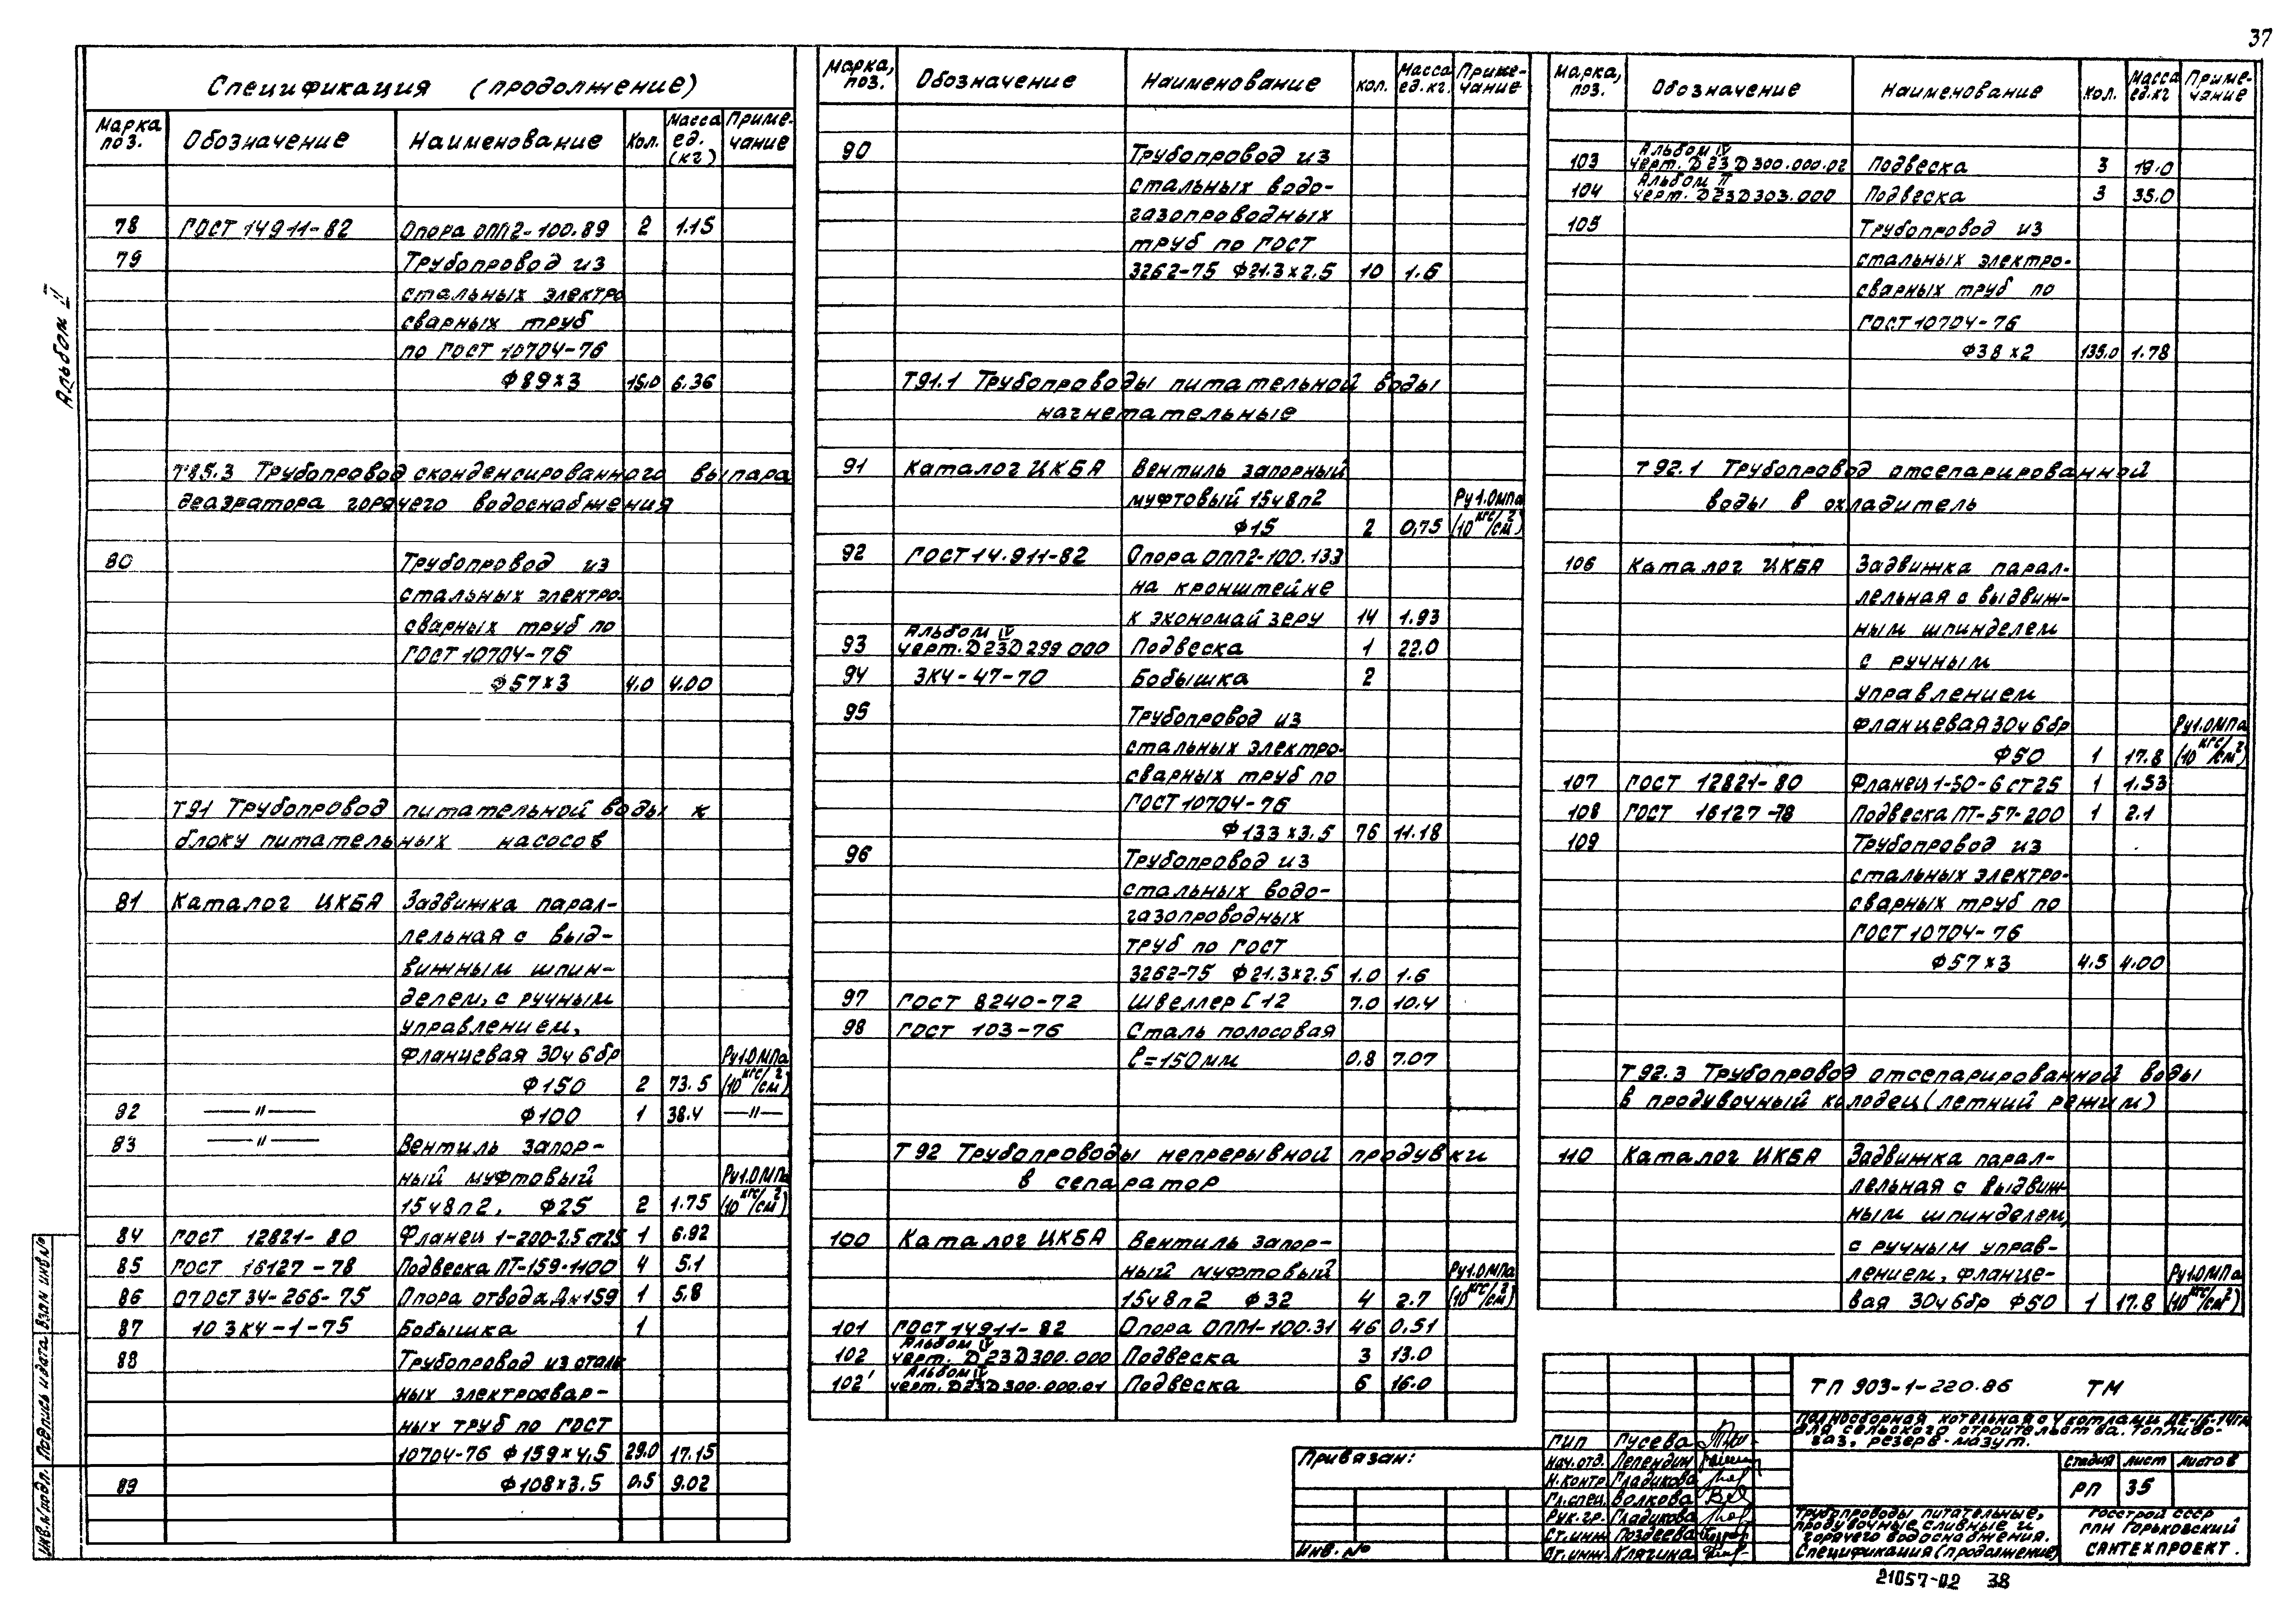 37
Альбом IV
Спецификация (продолжение)
Марка поз. Обозначение Наименование Кол. Масса ед. (кг) Примечание
78 ГОСТ 14911-82 Опора ОПП2-100.89 2 1.15
79 Трубопровод из
стальных электро
сварных труб
по ГОСТ 10704-76
Ф89×3 15.0 6.36
Т85.3 Трубопровод сконденсированного выпара
деаэратора горячего водоснабжения
80 Трубопровод из
стальных электро-
сварных труб по
ГОСТ 10704-76
Ф57×3 4.0 4.00
Т91 Трубопровод питательной воды к
блоку питательных насосов
81 Каталог ЦКБА Задвижка парал-
лельная с выд-
вижным шпин-
делем, с ручным
управлением,
фланцевая 30ч6бр Ру1.0МПа
Ф150 2 73.5 (10 кгс/см²)
92 —〃— Ф100 1 38.4 —〃—
83 —〃— Вентиль запор-
ный муфтовый Ру1.0МПа
15ч8п2, Ф25 2 1.75 (10 кгс/см²)
84 ГОСТ 12821-80 Фланец 1-200-2.5 ст25 1 6.92
85 ГОСТ 16127-78 Подвеска ПТ-159-1100 4 5.1
86 07 ОСТ 34-266-75 Опора отвода Дн159 1 5.8
87 10 ЗК4-1-75 Бобышка 1
88 Трубопровод из сталь
ных электросвар-
ных труб по ГОСТ
10704-76 Ф159×4.5 29.0 17.15
89 Ф108×3.5 0.5 9.02
Марка, поз. Обозначение Наименование Кол. Масса ед.кг. Примечание
90 Трубопровод из
стальных водо-
газопроводных
труб по ГОСТ
3262-75 Ф21.3×2.5 10 1.6
Т91.1 Трубопроводы питательной воды
нагнетательные
91 Каталог ЦКБА Вентиль запорный
муфтовый 15ч8п2 Ру1.0МПа
Ф15 2 0,75 (10 кгс/см²)
92 ГОСТ 14.911-82 Опора ОПП2-100.133
на кронштейне
к экономайзеру 14 1.93
93 Альбом IV
черт. Д23Д299 000 Подвеска 1 22.0
94 ЗК4-47-70 Бобышка 2
95 Трубопровод из
стальных электро-
сварных труб по
ГОСТ 10704-76
Ф133×3.5 76 11.18
96 Трубопровод из
стальных водо-
газопроводных
труб по ГОСТ
3262-75 Ф21.3×2.5 1.0 1.6
97 ГОСТ 8240-72 Швеллер [12 7.0 10.4
98 ГОСТ 103-76 Сталь полосовая
ℓ=150мм 0.8 7.07
Т92 Трубопроводы непрерывной продувки
в сепаратор
100 Каталог ЦКБА Вентиль запор-
ный муфтовый Ру1.0МПа
15ч8п2 Ф32 4 2.7 (10 кгс/см²)
101 ГОСТ 14911-82 Опора ОПП1-100.31 46 0.51
102 Альбом IV
черт. Д23Д300.000 Подвеска 3 13.0
102' Альбом IV
черт. Д23Д300.000.01 Подвеска 6 16.0
Марка, поз. Обозначение Наименование Кол. Масса ед.кг Примечание
103 Альбом IV
черт. Д23Д300.000.02 Подвеска 3 19.0
104 Альбом II
черт. Д23Д303.000 Подвеска 3 35.0
105 Трубопровод из
стальных электро-
сварных труб по
ГОСТ 10704-76
Ф38×2 135.0 1.78
Т92.1 Трубопровод отсепарированной
воды в охладитель
106 Каталог ЦКБА Задвижка парал-
лельная с выдвиж-
ным шпинделем
с ручным
управлением
фланцевая 30ч6бр Ру1.0МПа
Ф50 1 17.8 (10 кгс/см²)
107 ГОСТ 12821-80 Фланец 1-50-6 ст25 1 1.53
108 ГОСТ 16127-78 Подвеска ПТ-57-200 1 2.1
109 Трубопровод из
стальных электро-
сварных труб по
ГОСТ 10704-76
Ф57×3 4.5 4.00
Т92.3 Трубопровод отсепарированной воды
в продувочный колодец (летний режим)
110 Каталог ЦКБА Задвижка парал-
лельная с выдвиж
ным шпинделем,
с ручным управ-
лением, фланце- Ру1.0МПа
вая 30ч6бр Ф50 1 17.8 (10 кгс/см²)
Привязан:
Инв. №
ТП 903-1-220.86 ТМ
Полносборная котельная с 4 котлами ДЕ-16-14ГМ
для сельского строительства. Топливо-
газ, резерв-мазут.
ГИП Гусева
Нач.отд. Лепендин
Н.контр. Гладикова
Гл.спец. Волкова
Рук.гр. Гладикова
Ст.инж. Поздеева
Ст.инж. Клягина
Стадия Лист Листов
РП 35
Трубопроводы питательные,
продувочные сливные и
горячего водоснабжения.
Спецификация (продолжение)
Госстрой СССР
ГПИ Горьковский
САНТЕХПРОЕКТ.
21057-02 38
Инв.№подл. Подпись и дата Взам инв№